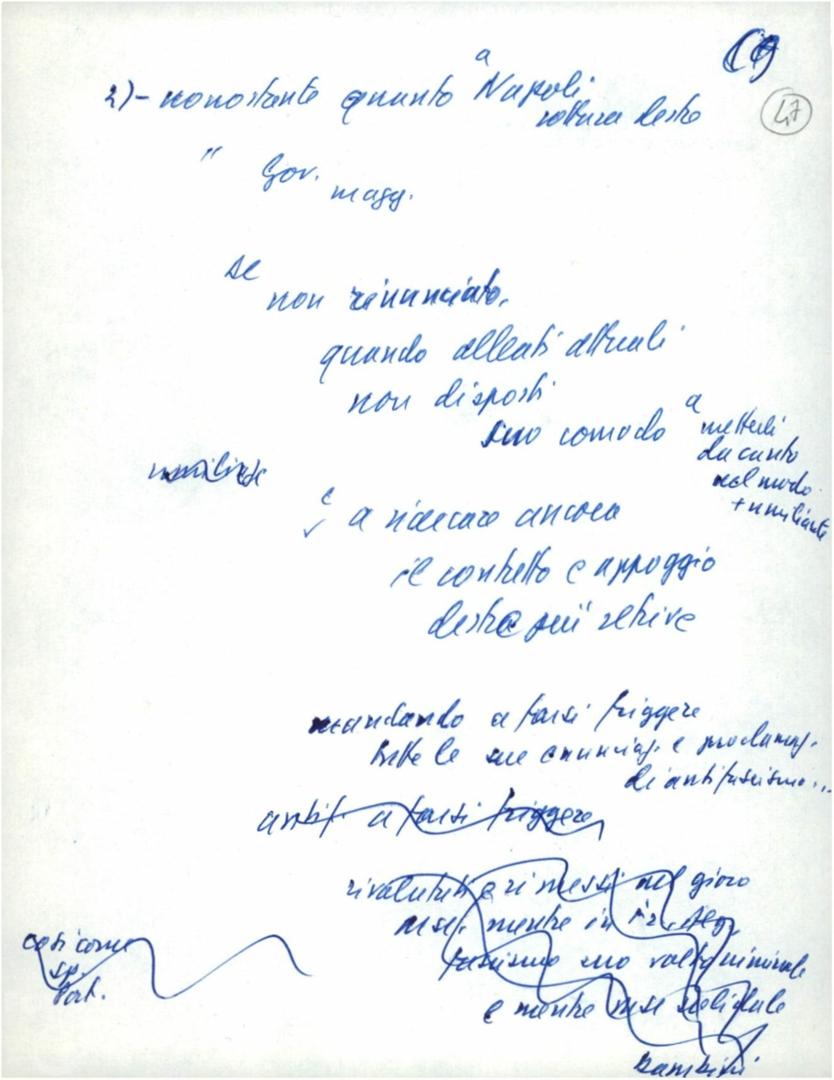 47
2)- nonostante quanto a Napoli
rottura destre
" Gov.
magg.
se
non rinunciato,
quando alleati attuali
non disposti
suo comodo a metterli
da canto
nel modo
+ umiliante
e a ricercare ancora
il contatto e appoggio
destre più retrive
mandando a farsi friggere
tutte le sue enunciaz. e proclamaz.
di antifascismo...
antif. a farsi friggere
rivalutati e rimessi nel gioco
msi, mentre in
fascismo suo volto criminale
e mentre
bambini
così come
sp.
Port.